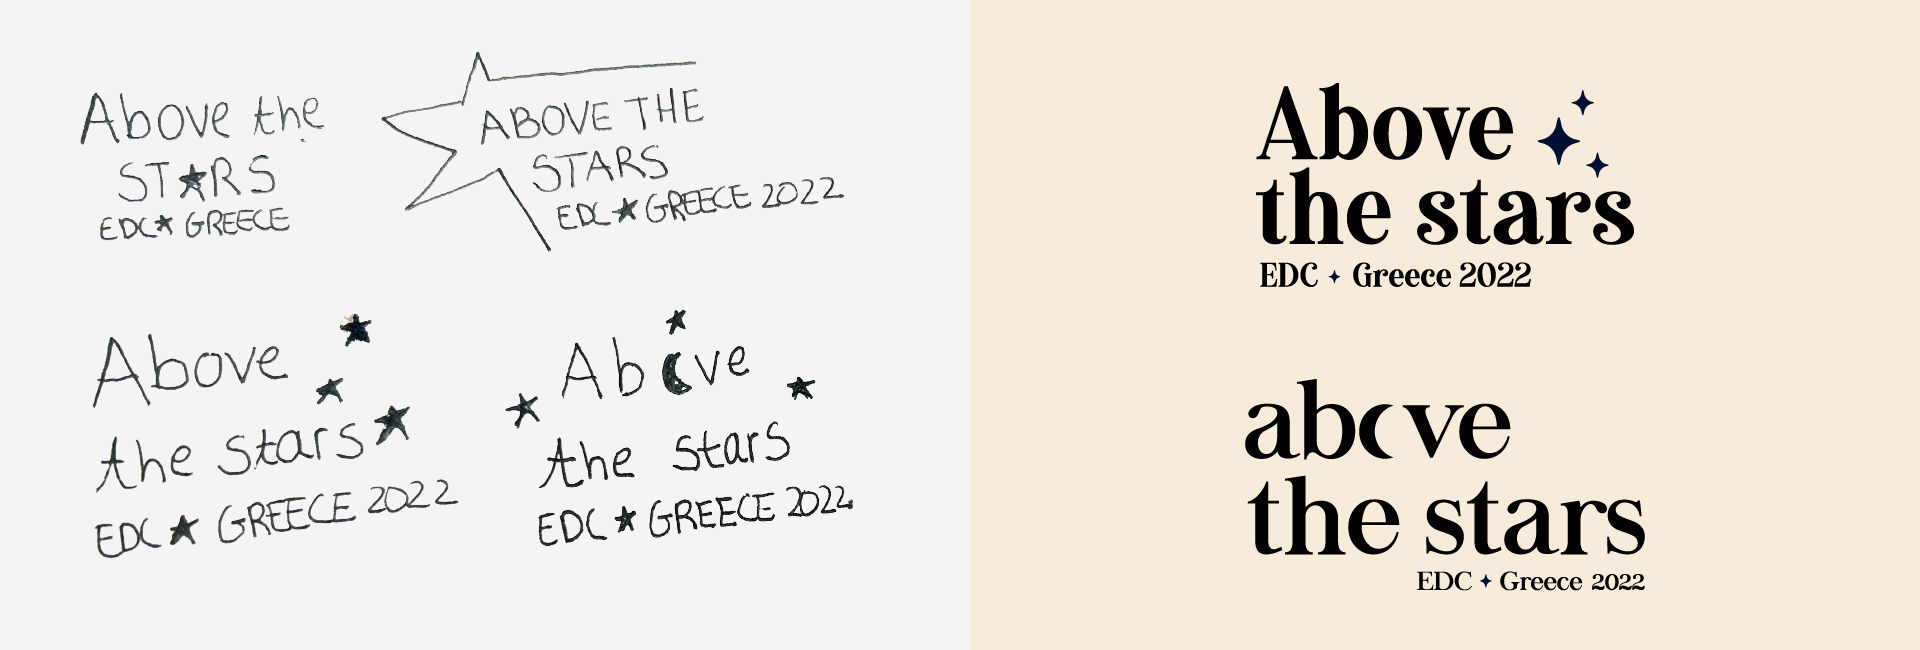 Above the
ST★RS
EDC★ GREECE
ABOVE THE
STARS
EDC★GREECE 2022
Above
the stars
EDC★ GREECE 2022
Ab☾ve
the stars
EDC★GREECE 2022
Above
the stars
EDC ✦ Greece 2022
ab☾ve
the stars
EDC ✦ Greece 2022